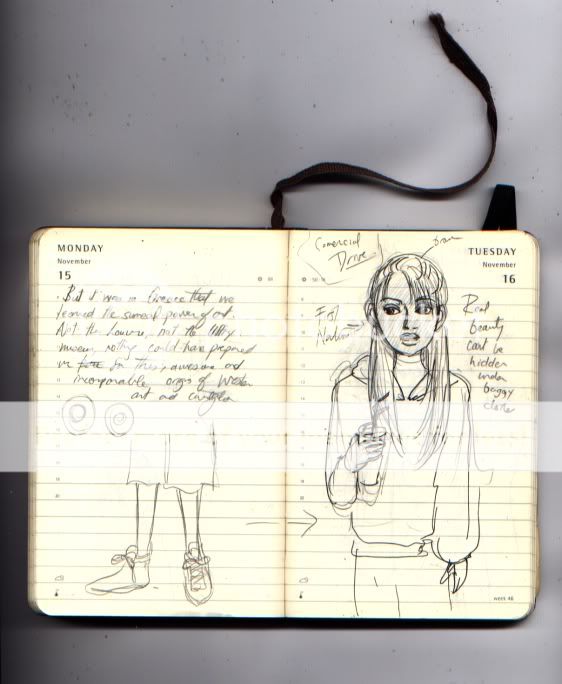 MONDAY
November
15
But it was in Greece that we
learned the surreal power of art.
Not the Louvre, not the
museum, nothing could have prepared
us for this, awesome and
incomparable origin of western
art and
Comercial
Drive
TUESDAY
November
16
Real
beauty
cant be
hidden
under
baggy
clothes
week 46